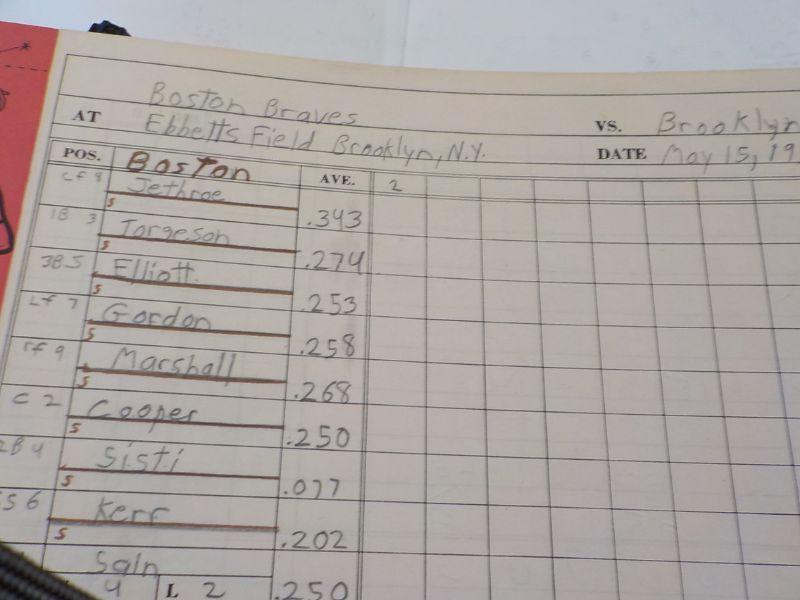 Boston Braves
AT Ebbetts Field Brooklyn, N.Y. VS. Brooklyn
DATE May 15, 19
POS. Boston AVE. 2
cf 8 Jethroe .343
S
1B 3 Torgeson .274
S
3B 5 Elliott .253
S
Lf 7 Gordon .258
S
rf 9 Marshall .268
S
C 2 Cooper .250
S
2B 4 Sisti .077
S
SS 6 Kerr .202
S
Sain
4 L 2 .250